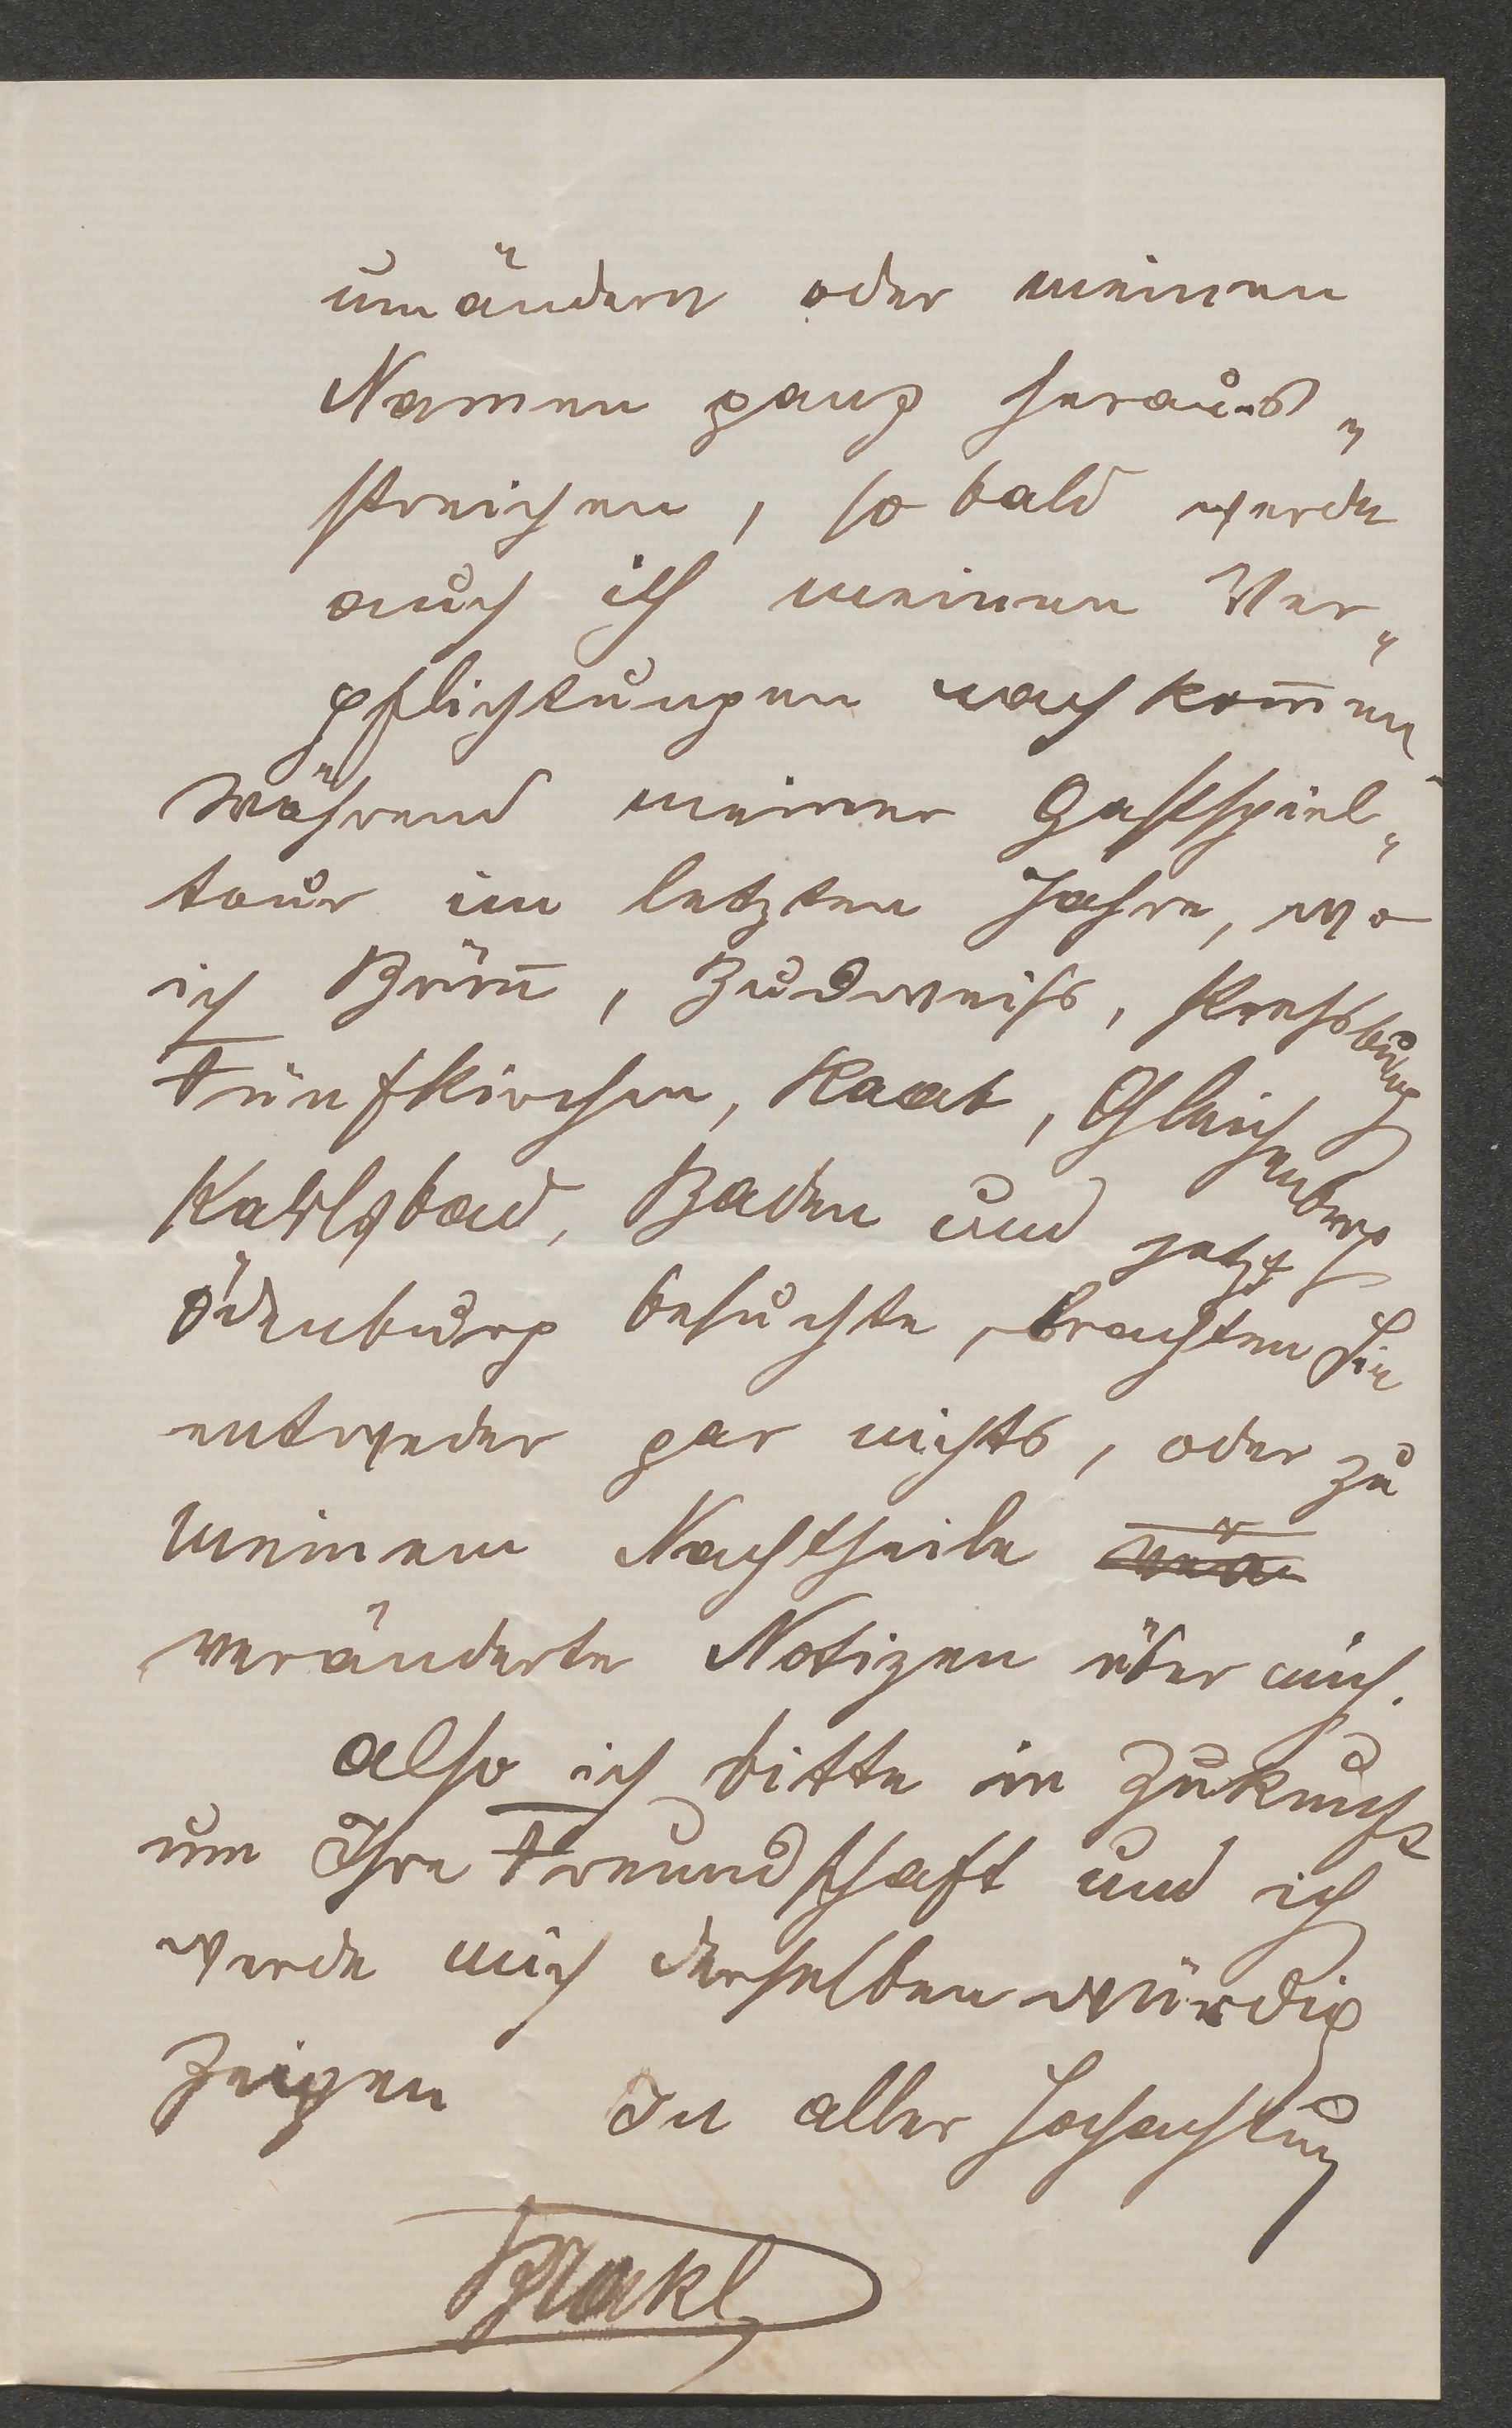 umändern oder meinen
Namen ganz heraus„
streichen, so bald werde
auch ich meinen Ver„
pflichtungen nachkom̅en
Während meiner Gastspiel„
tour im letzten Jahre, wo
ich Brün̅, Budweiss, Pressburg
Fünfkirchen, Raab, Gleichenberg
Karlsbad, Baden und jetzt
Ödenburg besuchte, brachten Sie
entweder gar nichts, oder zu
meinem Nachtheile
veränderte Notizen über mich.
also ich bitte in Zukunft
um Ihre Freundschaft und ich
werde mich derselben würdig
zeigen In aller Hochachtung
Brakl